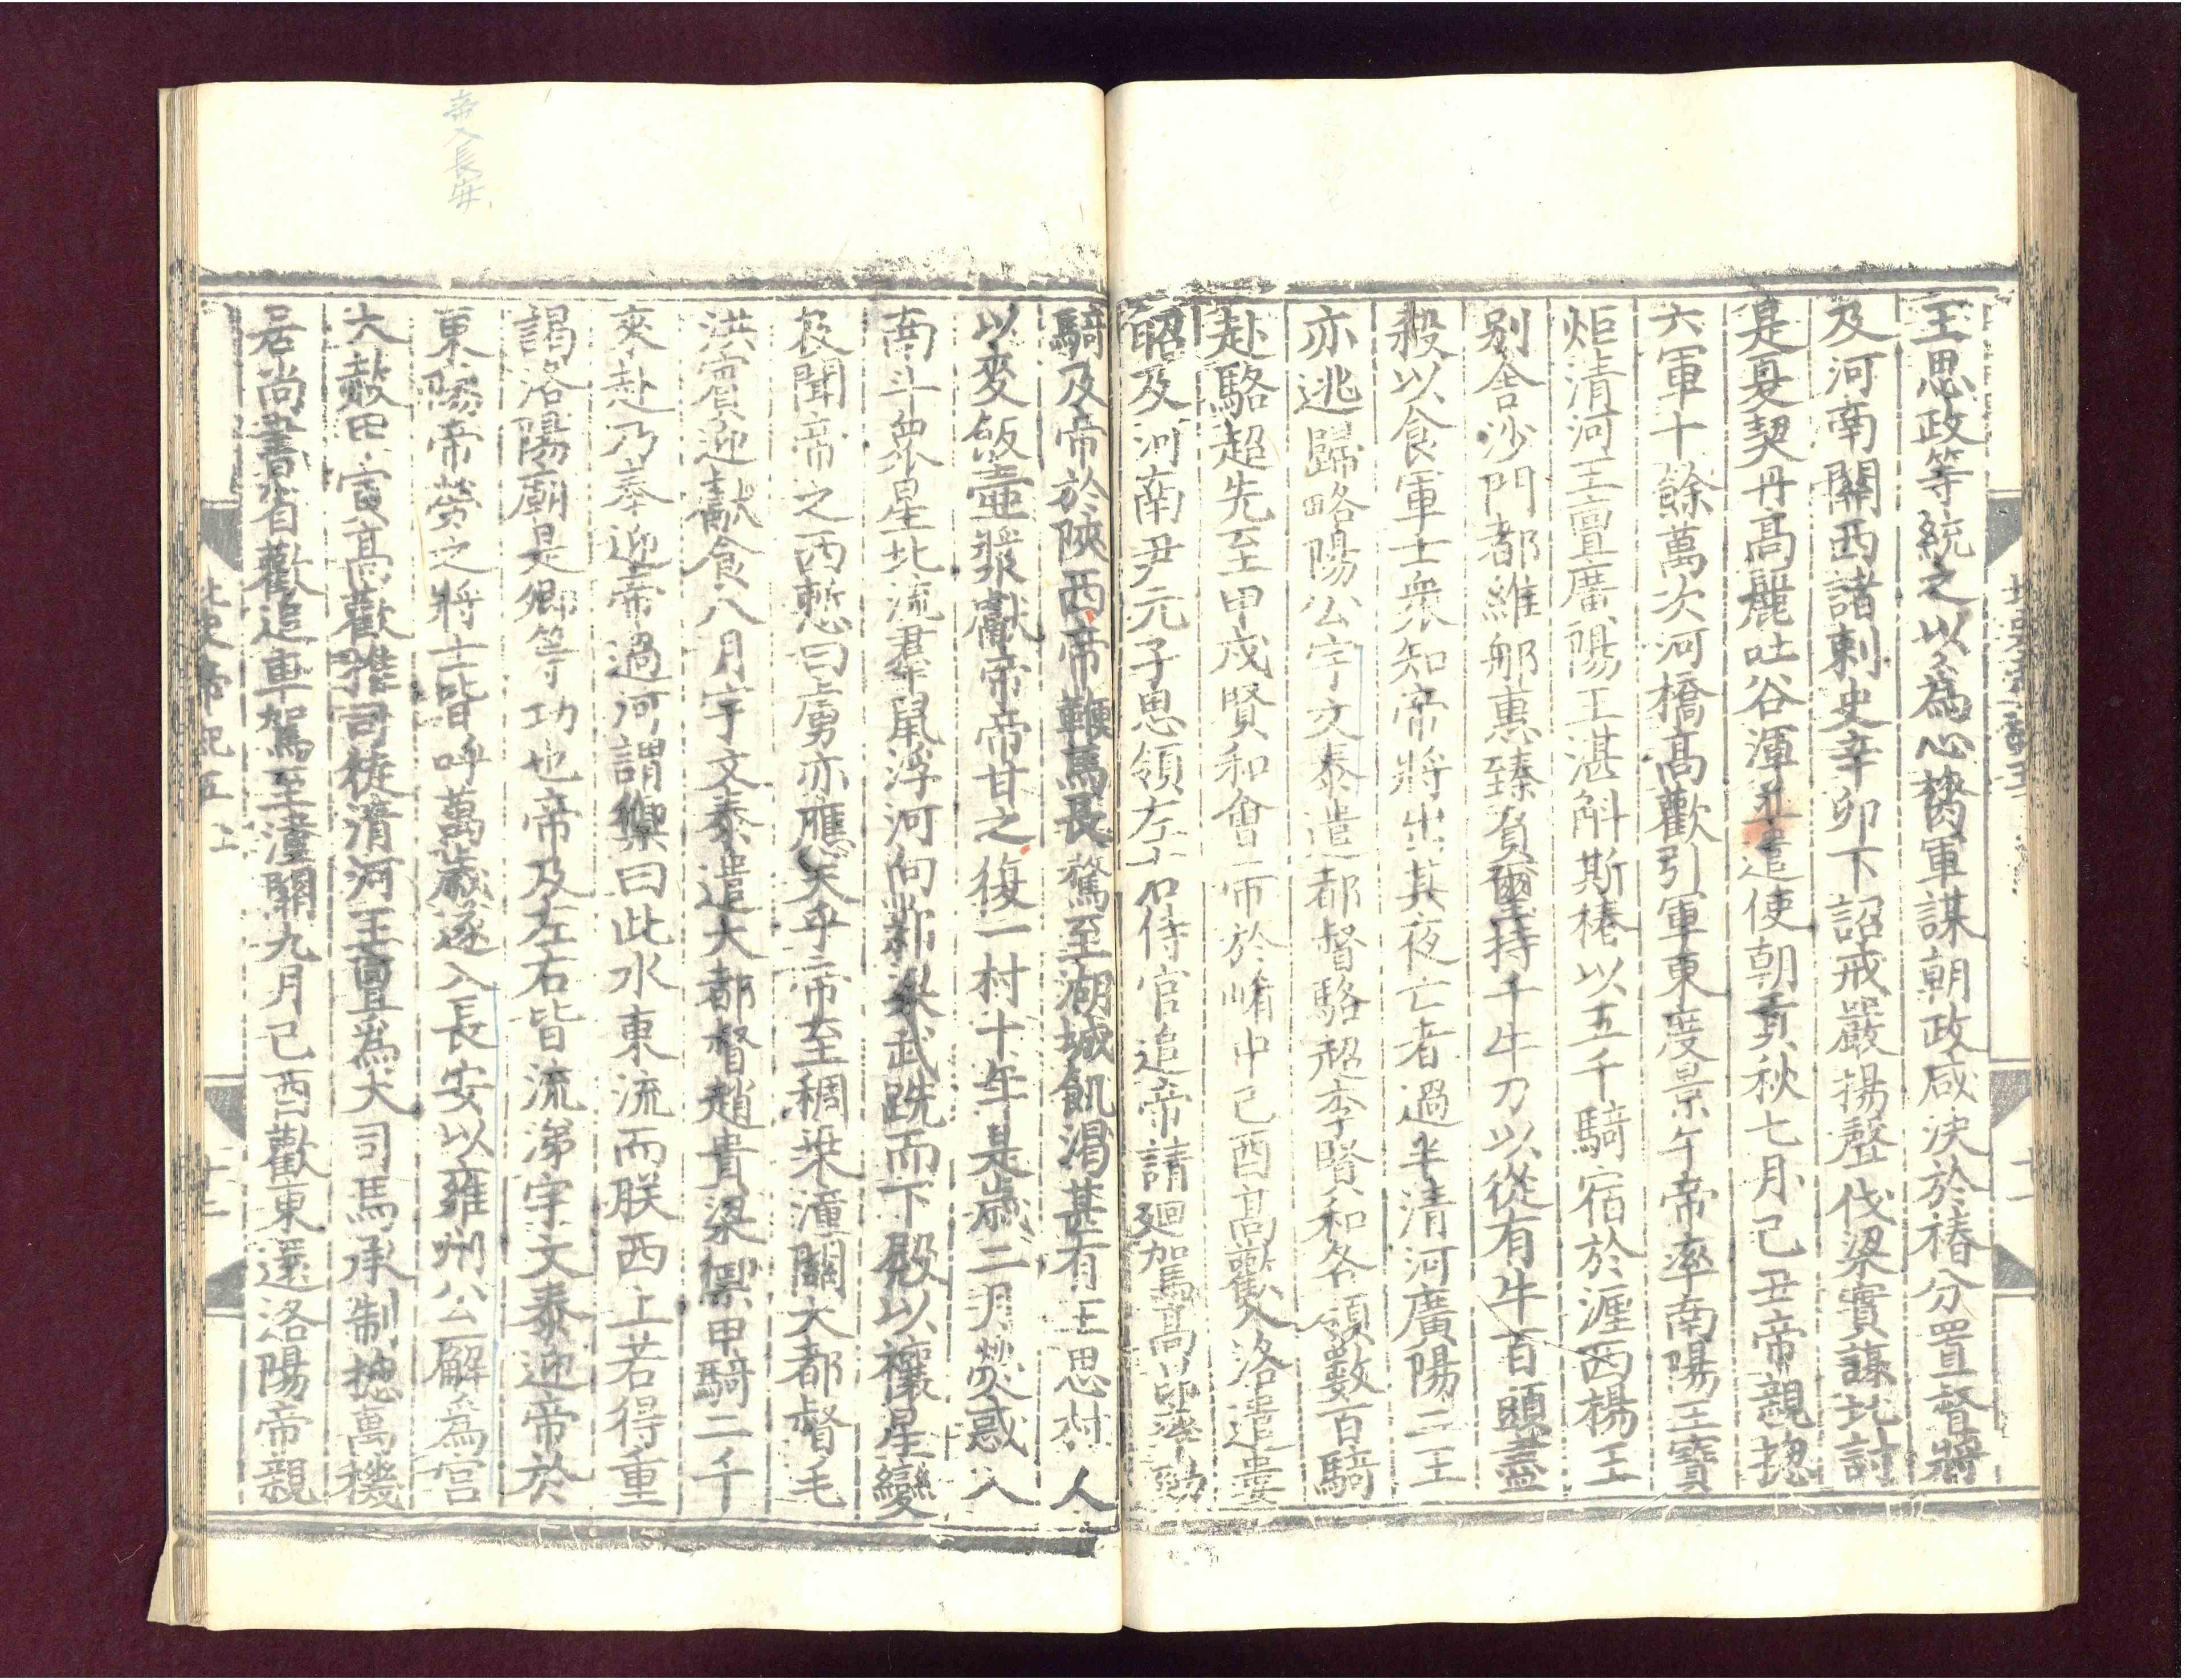 王思政等統之以爲心膂軍謀朝政咸決於椿分置督將
及河南關西諸刺史辛卯下詔戒嚴揚聲伐梁實謀北討
是夏契丹高麗吐谷渾並遣使朝貢秋七月己丑帝親揔
六軍十餘萬次河橋高歡引軍東度景午帝率南陽王寶
炬清河王亶廣陽王湛斛斯椿以五千騎宿於瀍西楊王
别舍沙門都維那惠臻負璽持千牛刀以從有牛百頭盡
殺以食軍士衆知帝將出其夜亡者過半清河廣陽二王
亦逃歸略陽公宇文泰遣都督駱超李賢和各領數百騎
赴駱超先至甲戌賢和會帝於崤中己酉高歡入洛遣婁
昭及河南尹元子思領左右侍官追帝請迴駕高昂率勁
騎及帝於陝西帝鞭馬長騖至湖城飢渴甚有王思村人
以麥飯壺漿獻帝帝甘之復一村十年是歲二月熒惑入
南斗衆星北流群鼠浮河向鄴梁武跣而下殿以禳星變
及聞帝之西慙曰虜亦應天乎帝至稠桑潼關大都督毛
洪賓迎獻食八月宇文泰遣大都督趙貴梁禦甲騎二千
來赴乃奉迎帝過河謂禦曰此水東流而朕西上若得重
謁洛陽廟是卿等功也帝及左右皆流涕宇文泰迎帝於
東陽帝勞之將士皆呼萬歲遂入長安以雍州公廨爲宫
大赦甲寅高歡推司徒清河王亶爲大司馬承制揔萬機
居尚書省歡追車駕至潼關九月己酉歡東還洛陽帝親
北史帝紀五 上
十二
帝入長安